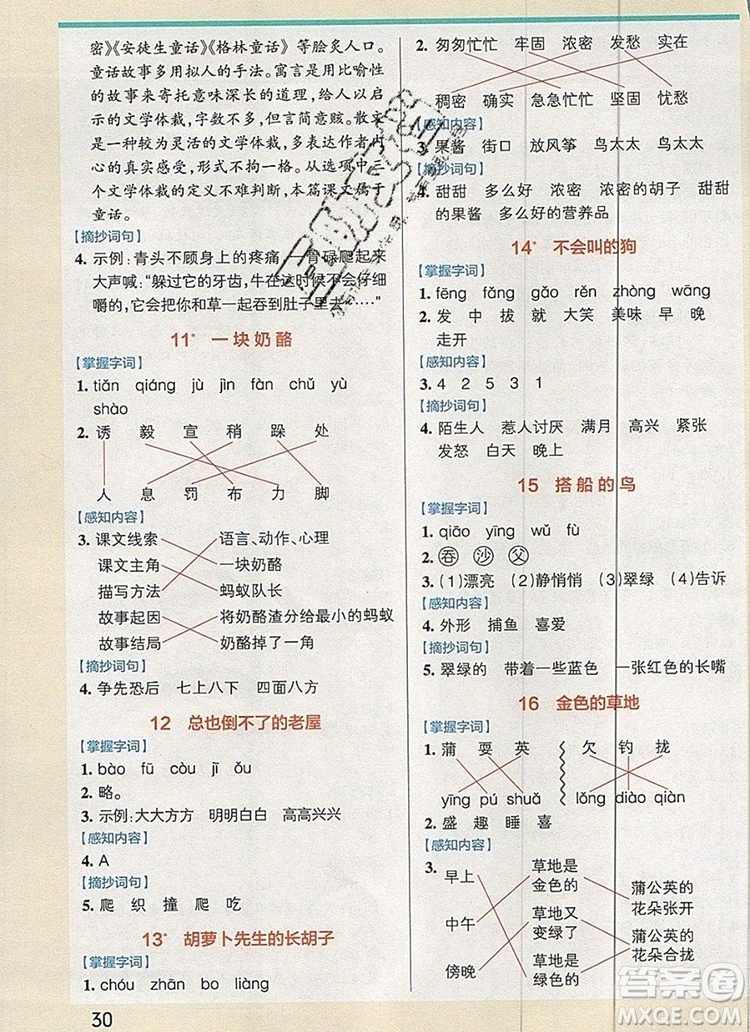 密》《安徒生童话》《格林童话》等脍炙人口。
童话故事多用拟人的手法。寓言是用比喻性
的故事来寄托意味深长的道理,给人以启
示的文学体裁,字数不多,但言简意赅。散文
是一种较为灵活的文学体裁,多表达作者内
心的真实感受,形式不拘一格。从选项中三
个文学体裁的定义不难判断,本篇课文属于
童话。
【摘抄词句】
4. 示例:青头不顾身上的疼痛,一骨碌爬起来
大声喊:“躲过它的牙齿,牛在这时候不会仔细
嚼的,它会把你和草一起吞到肚子里去……”
11* 一块奶酪
【掌握字词】
1. tiǎn qiáng jù jìn fàn chǔ yù
shào
2. 诱 毅 宣 稍 跺 处
人 息 罚 布 力 脚
【感知内容】
3. 课文线索 语言、动作、心理
课文主角 一块奶酪
描写方法 蚂蚁队长
故事起因 将奶酪渣分给最小的蚂蚁
故事结局 奶酪掉了一角
【摘抄词句】
4. 争先恐后 七上八下 四面八方
12 总也倒不了的老屋
【掌握字词】
1. bào fū còu jǐ ǒu
2. 略。
3. 示例:大大方方 明明白白 高高兴兴
【感知内容】
4. A
【摘抄词句】
5. 爬 织 撞 爬 吃
13* 胡萝卜先生的长胡子
【掌握字词】
1. chóu zhān bo liàng
30
2. 匆匆忙忙 牢固 浓密 发愁 实在
稠密 确实 急急忙忙 坚固 忧愁
【感知内容】
3. 果酱 街口 放风筝 鸟太太 鸟太太
【摘抄词句】
4. 甜甜 多么好 浓密 浓密的胡子 甜甜
的果酱 多么好的营养品
14* 不会叫的狗
【掌握字词】
1. fēng fǎng gǎo rěn zhòng wāng
2. 发 中 拔 就 大笑 美味 早 晚
走开
【感知内容】
3. 4 2 5 3 1
【摘抄词句】
4. 陌生人 惹人讨厌 满月 高兴 紧张
发怒 白天 晚上
15 搭船的鸟
【掌握字词】
1. qiāo yīng wǔ fù
2. 吞 沙 父
3. (1)漂亮 (2)静悄悄 (3)翠绿 (4)告诉
【感知内容】
4. 外形 捕鱼 喜爱
【摘抄词句】
5. 翠绿的 带着一些蓝色 一张红色的长嘴
16 金色的草地
【掌握字词】
1. 蒲 耍 英 欠 钓 拢
yīng pú shuǎ lǒng diào qiàn
2. 盛 趣 睡 喜
【感知内容】
3. 早上 草地是
金色的 蒲公英的
花朵张开
中午 草地又
变绿了 蒲公英的
花朵合拢
傍晚 草地是
绿色的
答案圈
MXQE.COM